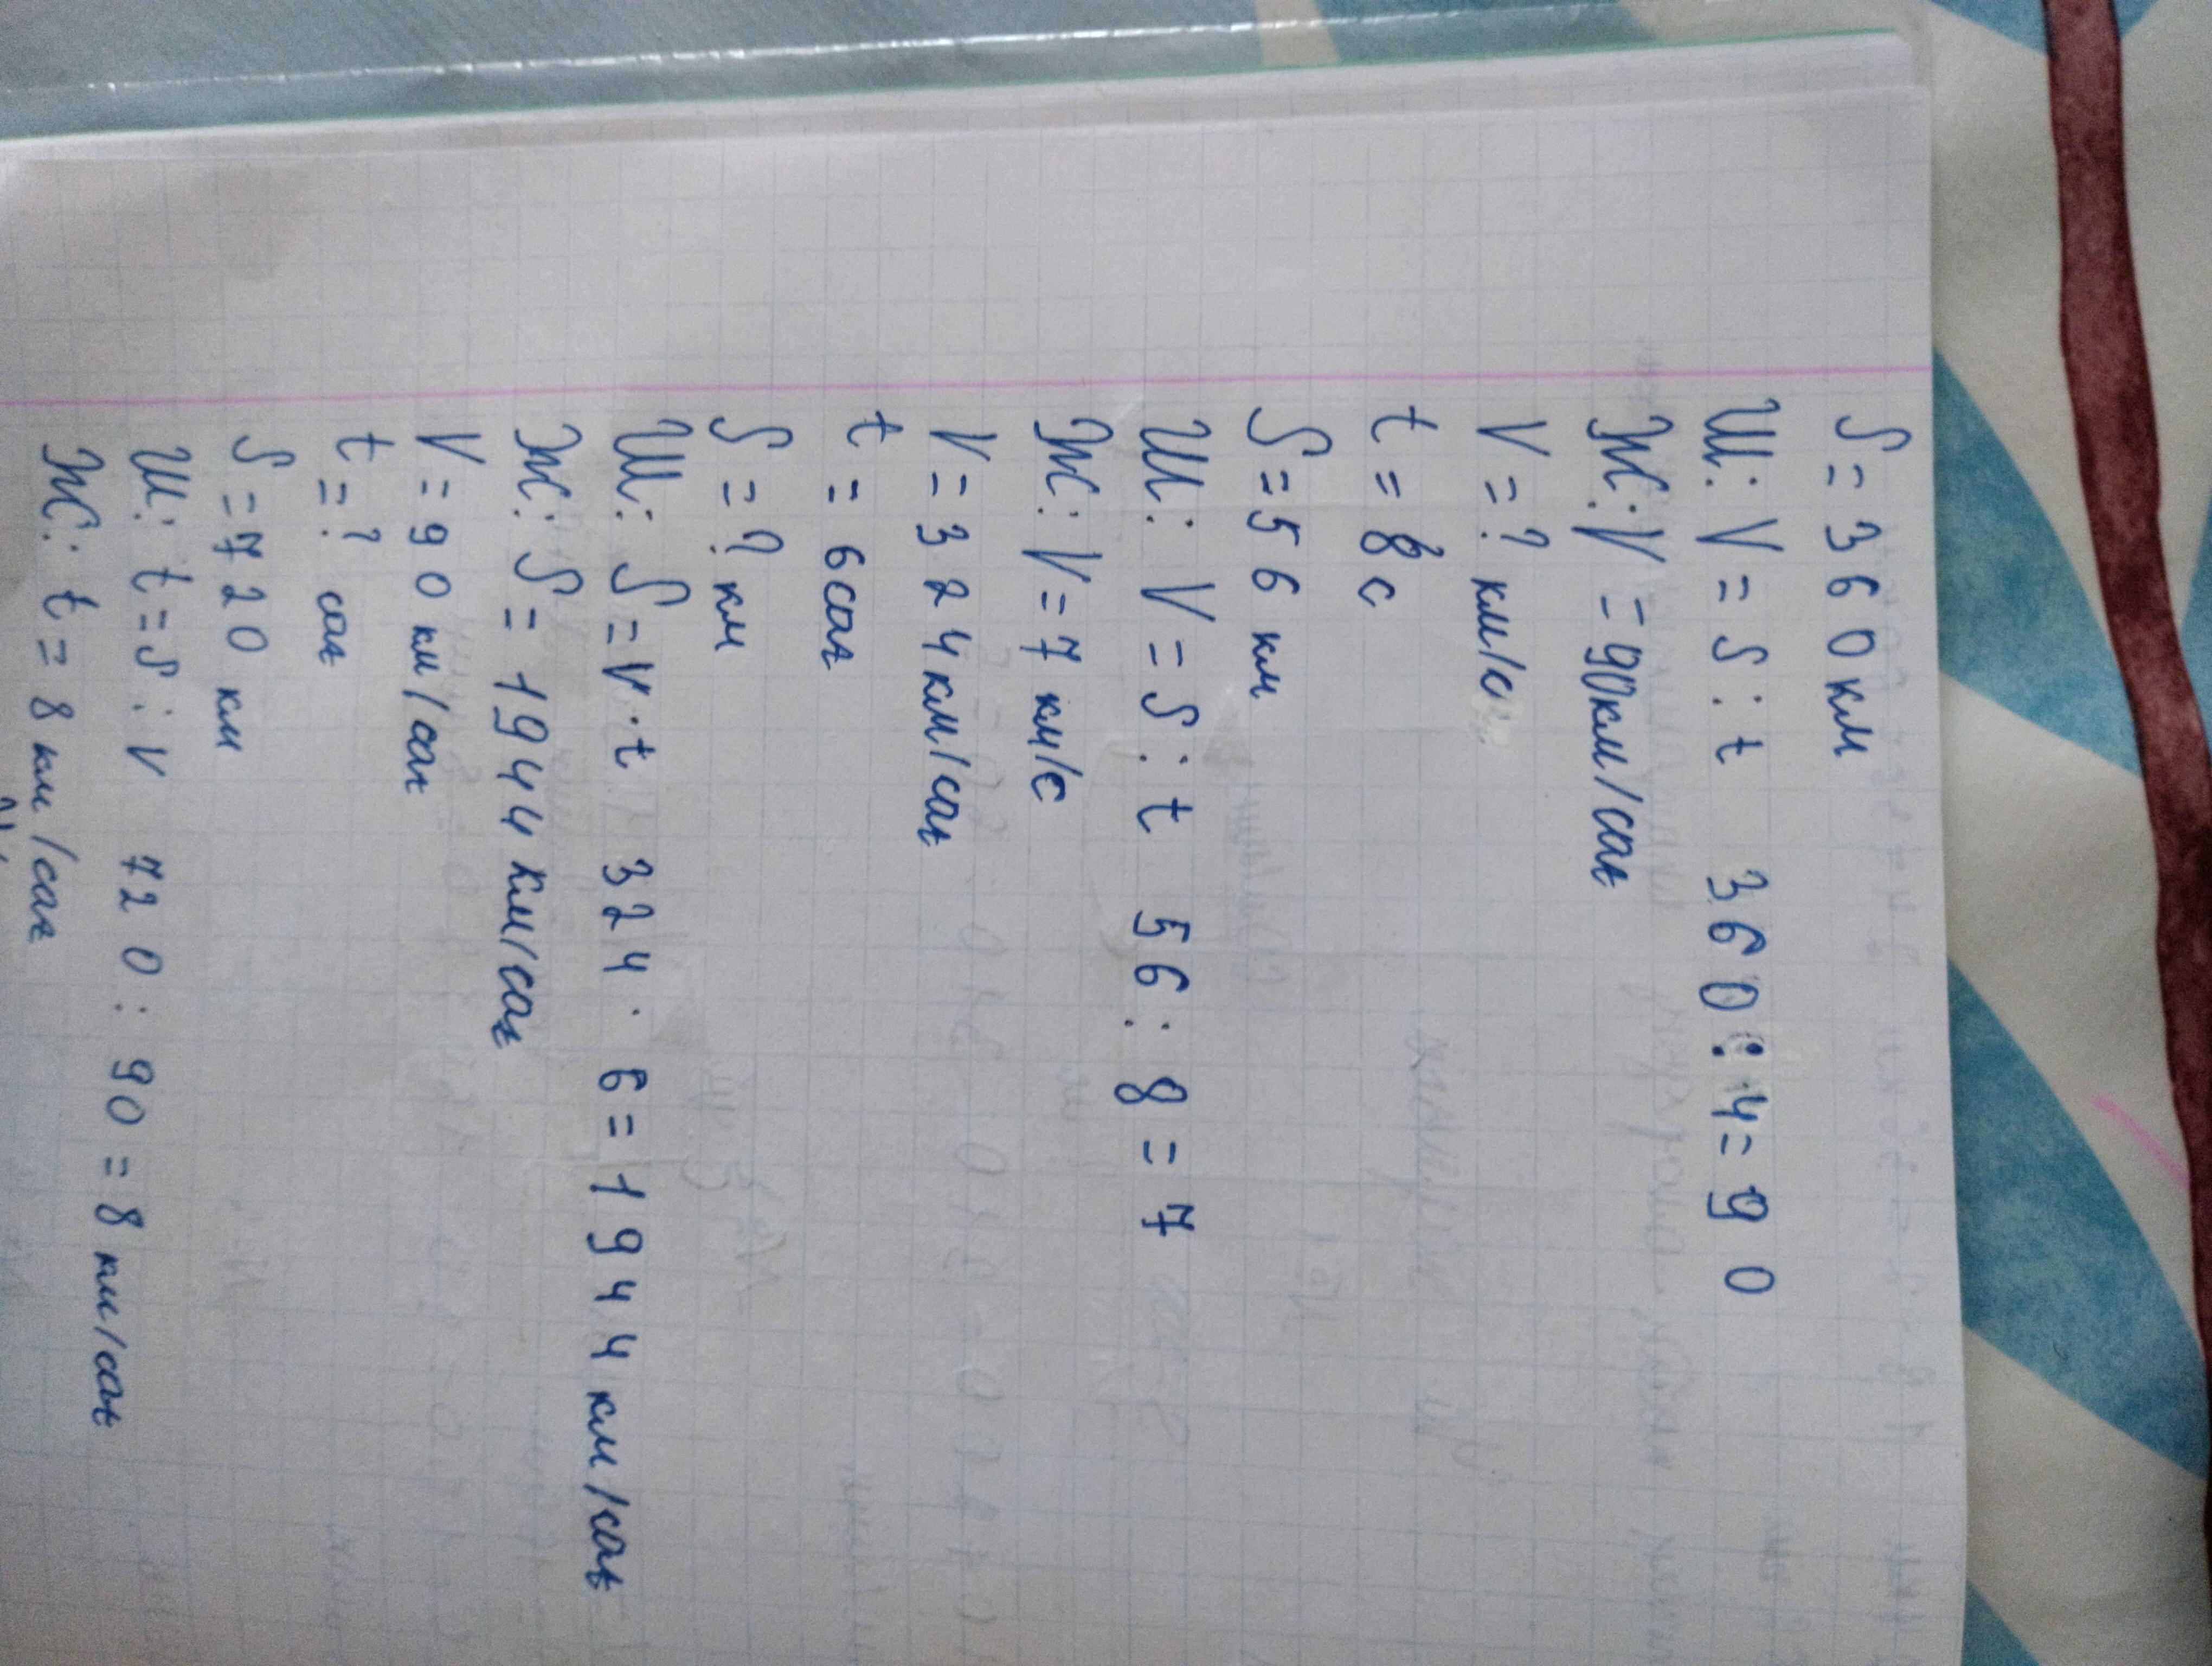 S = 360 км
Ш: V = S : t 360 : 4 = 90
Ж: V = 90км/сағ
V = ? км/с
t = 8 с
S = 56 км
Ш: V = S : t 56 : 8 = 7
Ж: V = 7 км/с
V = 324км/сағ
t = 6сағ
S = ? км
Ш: S = V · t 324 · 6 = 1944 км/сағ
Ж: S = 1944 км/сағ
V = 90 км/сағ
t = ? сағ
S = 720 км
Ш: t = S : V 720 : 90 = 8 км/сағ
Ж: t = 8 км/сағ